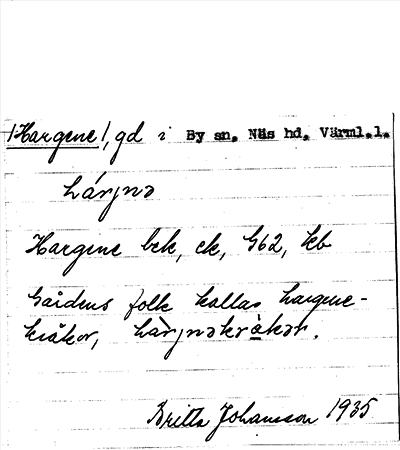 /Hargene/, gd i By sn, Näs hd, Värml.l.
hárjnə
Hargene bek, ek, G62, kb
Gårdens folk kallas hargene-
kråkor, hàrjnəkråkər.
Britta Johansson 1935